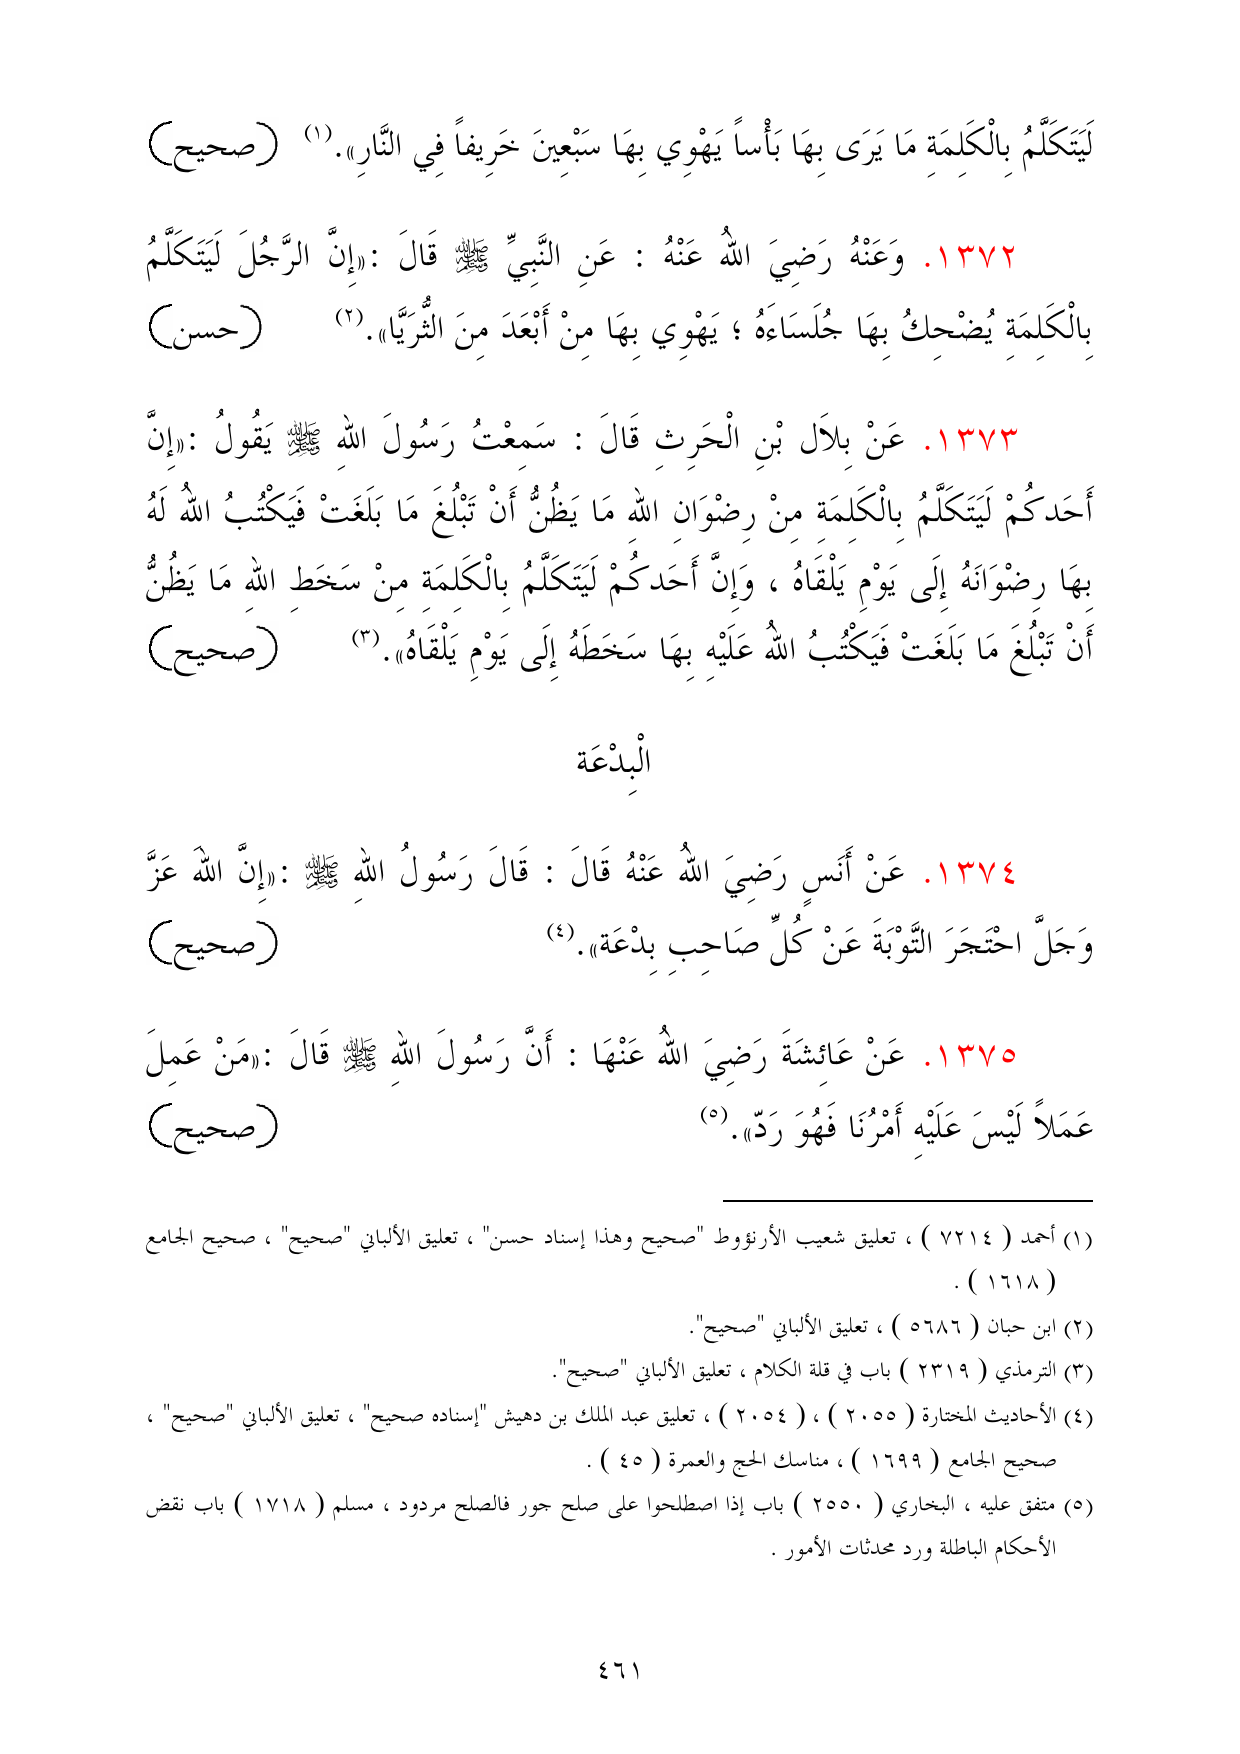 لَيَتَكَلَّمُ بِالْكَلِمَةِ مَا يَرَى بِهَا بَأْساً يَهْوِي بِهَا سَبْعِينَ خَرِيفاً فِي النَّارِ». (١) (صحيح)
١٣٧٢. وَعَنْهُ رَضِيَ اللهُ عَنْهُ : عَنِ النَّبِيِّ ﷺ قَالَ :«إِنَّ الرَّجُلَ لَيَتَكَلَّمُ
بِالْكَلِمَةِ يُضْحِكُ بِهَا جُلَسَاءَهُ ؛ يَهْوِي بِهَا مِنْ أَبْعَدَ مِنَ الثُّرَيَّا». (٢) (حسن)
١٣٧٣. عَنْ بِلاَلِ بْنِ الْحَرِثِ قَالَ : سَمِعْتُ رَسُولَ اللهِ ﷺ يَقُولُ :«إِنَّ
أَحَدكُمْ لَيَتَكَلَّمُ بِالْكَلِمَةِ مِنْ رِضْوَانِ اللهِ مَا يَظُنُّ أَنْ تَبْلُغَ مَا بَلَغَتْ فَيَكْتُبُ اللهُ لَهُ
بِهَا رِضْوَانَهُ إِلَى يَوْمِ يَلْقَاهُ ، وَإِنَّ أَحَدكُمْ لَيَتَكَلَّمُ بِالْكَلِمَةِ مِنْ سَخَطِ اللهِ مَا يَظُنُّ
أَنْ تَبْلُغَ مَا بَلَغَتْ فَيَكْتُبُ اللهُ عَلَيْهِ بِهَا سَخَطَهُ إِلَى يَوْمِ يَلْقَاهُ». (٣) (صحيح)
الْبِدْعَة
١٣٧٤. عَنْ أَنَسٍ رَضِيَ اللهُ عَنْهُ قَالَ : قَالَ رَسُولُ اللهِ ﷺ :«إِنَّ اللهَ عَزَّ
وَجَلَّ احْتَجَرَ التَّوْبَةَ عَنْ كُلِّ صَاحِبِ بِدْعَة». (٤) (صحيح)
١٣٧٥. عَنْ عَائِشَةَ رَضِيَ اللهُ عَنْهَا : أَنَّ رَسُولَ اللهِ ﷺ قَالَ :«مَنْ عَمِلَ
عَمَلاً لَيْسَ عَلَيْهِ أَمْرُنَا فَهُوَ رَدّ». (٥) (صحيح)
(١) أحمد ( ٧٢١٤ ) ، تعليق شعيب الأرنؤوط "صحيح وهذا إسناد حسن" ، تعليق الألباني "صحيح" ، صحيح الجامع
( ١٦١٨ ) .
(٢) ابن حبان ( ٥٦٨٦ ) ، تعليق الألباني "صحيح".
(٣) الترمذي ( ٢٣١٩ ) باب في قلة الكلام ، تعليق الألباني "صحيح".
(٤) الأحاديث المختارة ( ٢٠٥٥ ) ، ( ٢٠٥٤ ) ، تعليق عبد الملك بن دهيش "إسناده صحيح" ، تعليق الألباني "صحيح" ،
صحيح الجامع ( ١٦٩٩ ) ، مناسك الحج والعمرة ( ٤٥ ) .
(٥) متفق عليه ، البخاري ( ٢٥٥٠ ) باب إذا اصطلحوا على صلح جور فالصلح مردود ، مسلم ( ١٧١٨ ) باب نقض
الأحكام الباطلة ورد محدثات الأمور .
٤٦١